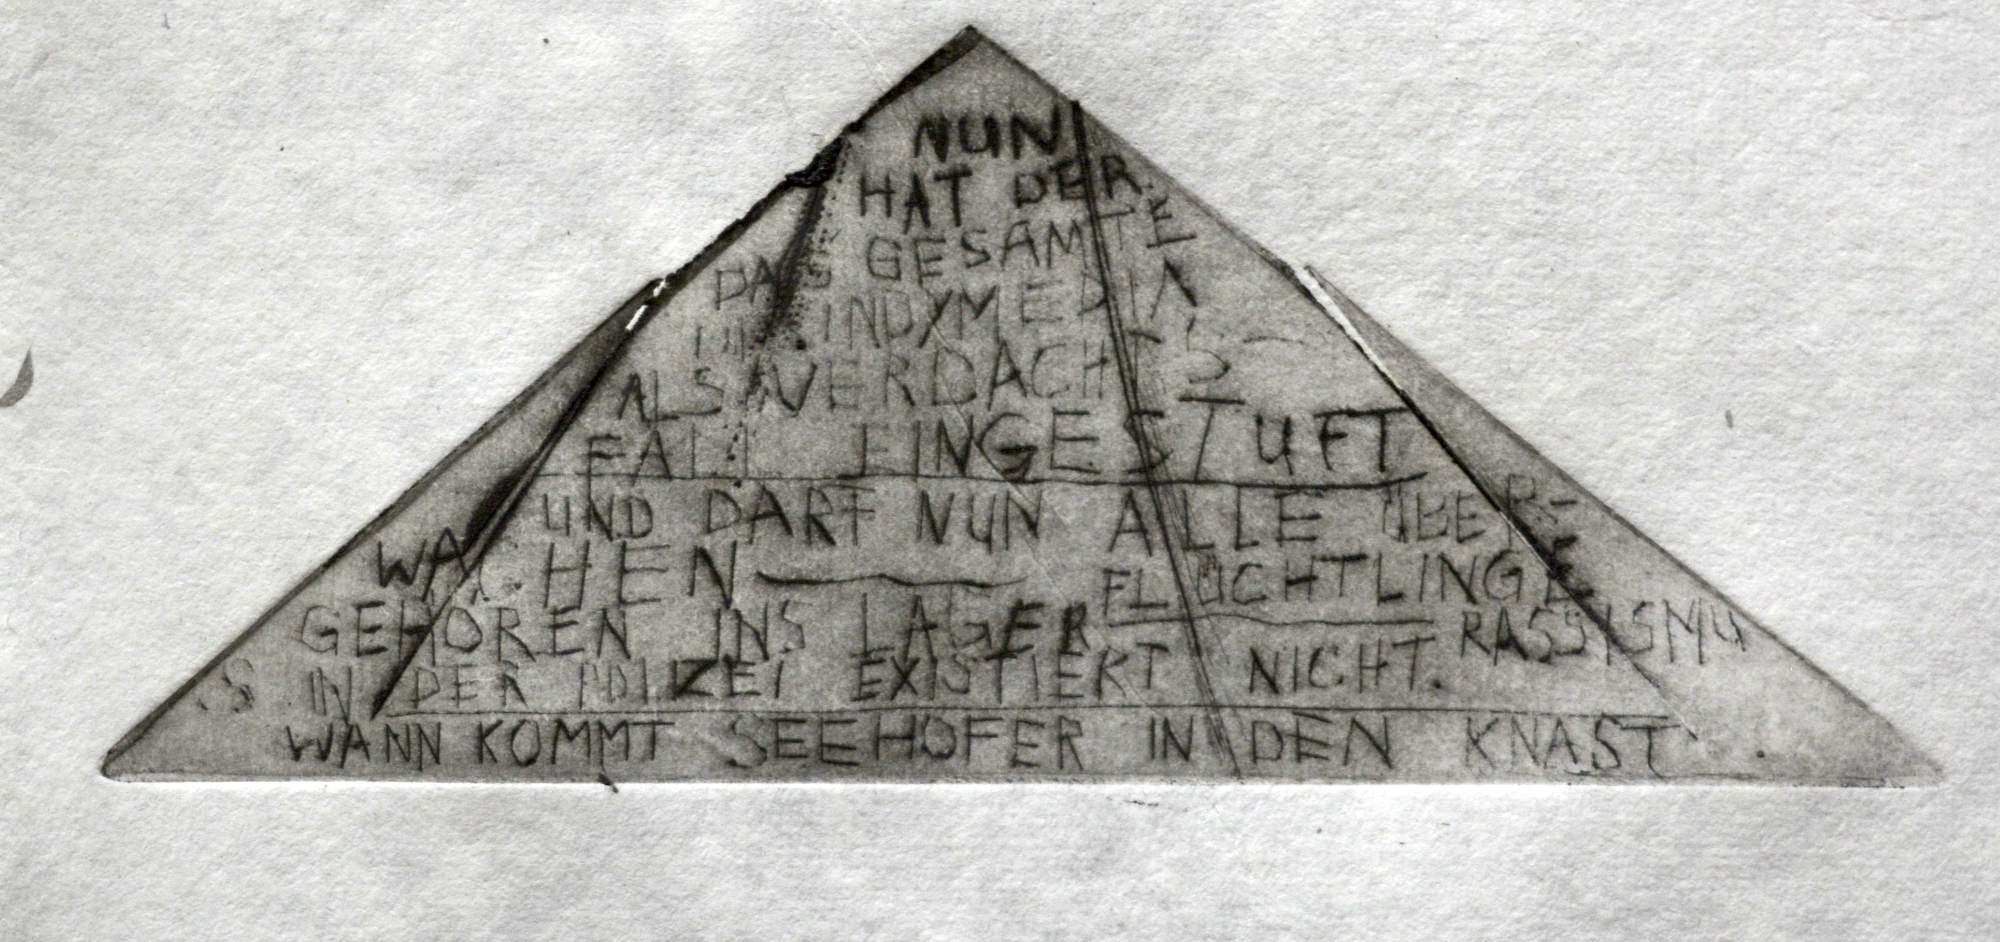 NUN
HAT DER
DAS GESAMTE
INDYMEDIA
ALS VERDACHTS-
FALL EINGESTUFT
UND DARF NUN ALLE ÜBER-
WACHEN — FLÜCHTLINGE
GEHÖREN INS LAGER RASSISMU
S IN DER POLIZEI EXISTIERT NICHT.
WANN KOMMT SEEHOFER IN DEN KNAST